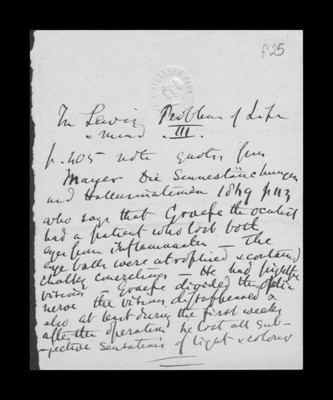 f 25
In Lewis Problems of Life
& mind. III.
p. 405 note quotes from
Mayer Die Sinnestäuschungen
und Hallucinationen 1869 p 113
who says that Graefe the oculist
had a patient who lost both
eyes from inflammation – The
eye balls were atrophied & contained
chalky concretions – He had frightful
visions – Graefe divided the optic
nerve the visions disappeared &
also at least during the first weeks
after the operation he lost all sub-
-jective sensations of light & colours